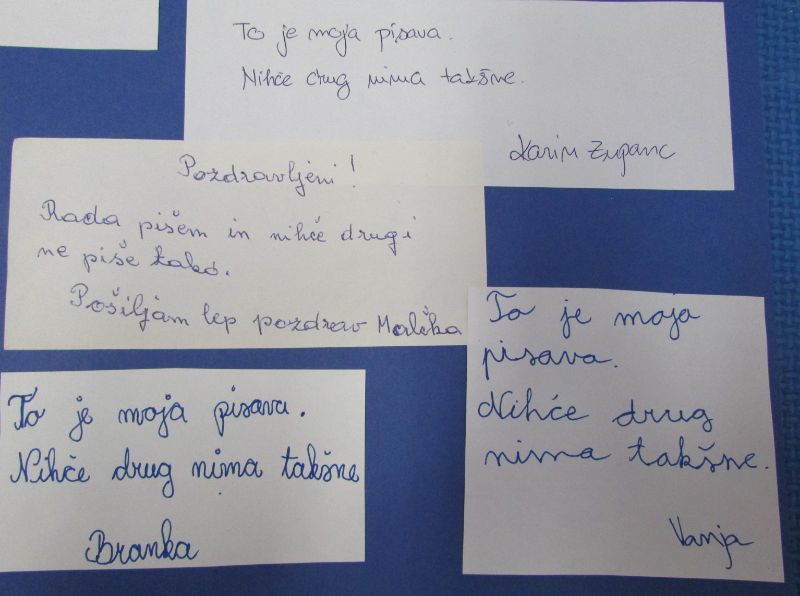 To je moja pisava.
Nihče drug nima takšne.
Karin Zupanc
Pozdravljeni!
Rada pišem in nihče drugi
ne piše tako.
Pošiljam lep pozdrav Malčka
To je moja
pisava.
Nihče drug
nima takšne.
Vanja
To je moja pisava.
Nihče drug nima takšne
Branka